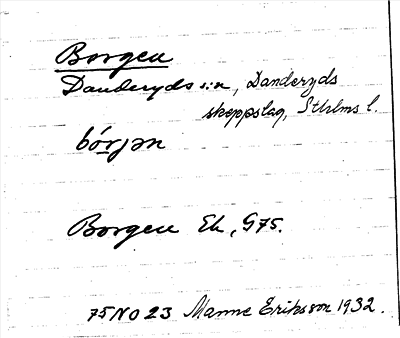 Borgen
Danderyds s:n, Danderyds
skeppslag, Sthlms l.
bórjən
Borgen Ek, G75.
75 NO 23 Manne Eriksson 1932.